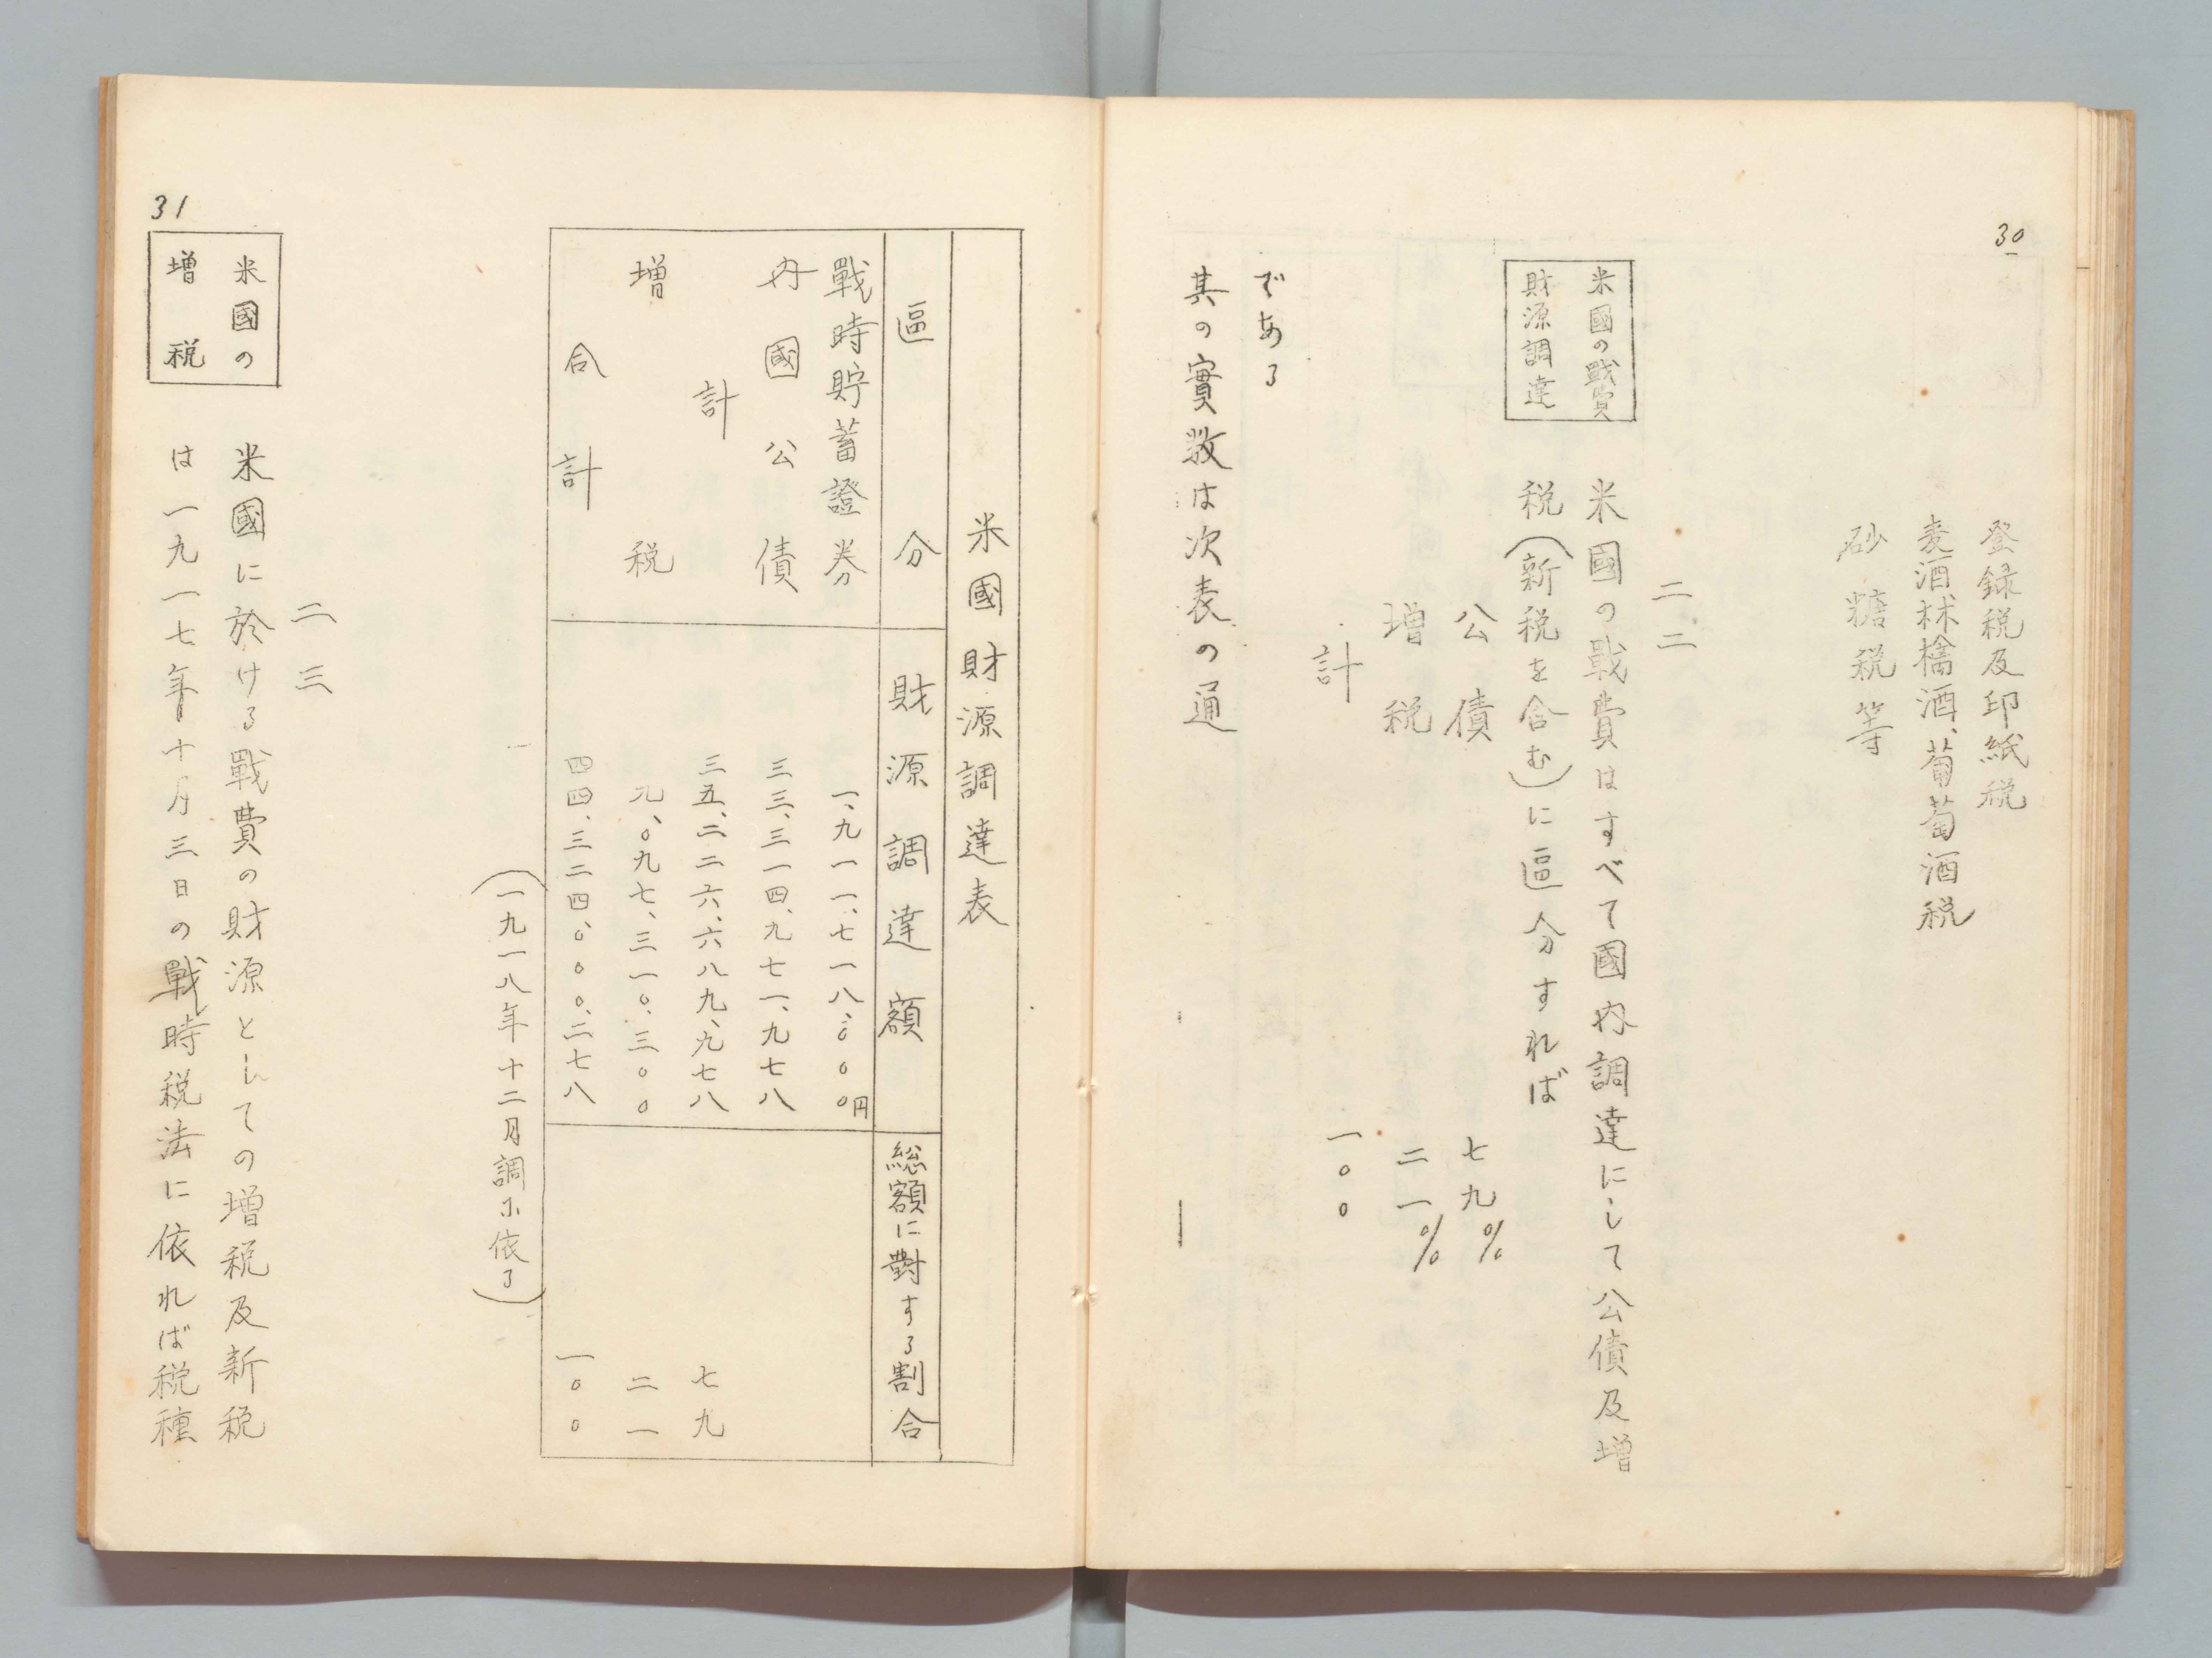 30
登録税及印紙税
麦酒、林檎酒、葡萄酒税
砂糖税等
二二
米國の戰費
財源調達
米國の戰費はすべて國内調達にして公債及増
税(新税を含む)に區分すれば
公債 七九%
増税 二一%
計 一〇〇
である
其の實数は次表の通
米國財源調達表
區分 財源調達額 総額に對する割合
戰時貯蓄證券 一、九一一、七一八、〇〇〇円
内國公債 三三、三一四、九七一、九七八
計 三五、二二六、六八九、九七八 七九
増税 九、〇九七、三一〇、三〇〇 二一
合計 四四、三二四、〇〇〇、二七八 一〇〇
(一九一八年十二月調に依る)
二三
31
米國の
増税
米國に於ける戰費の財源としての増税及新税
は一九一七年十月三日の戰時税法に依れば税種